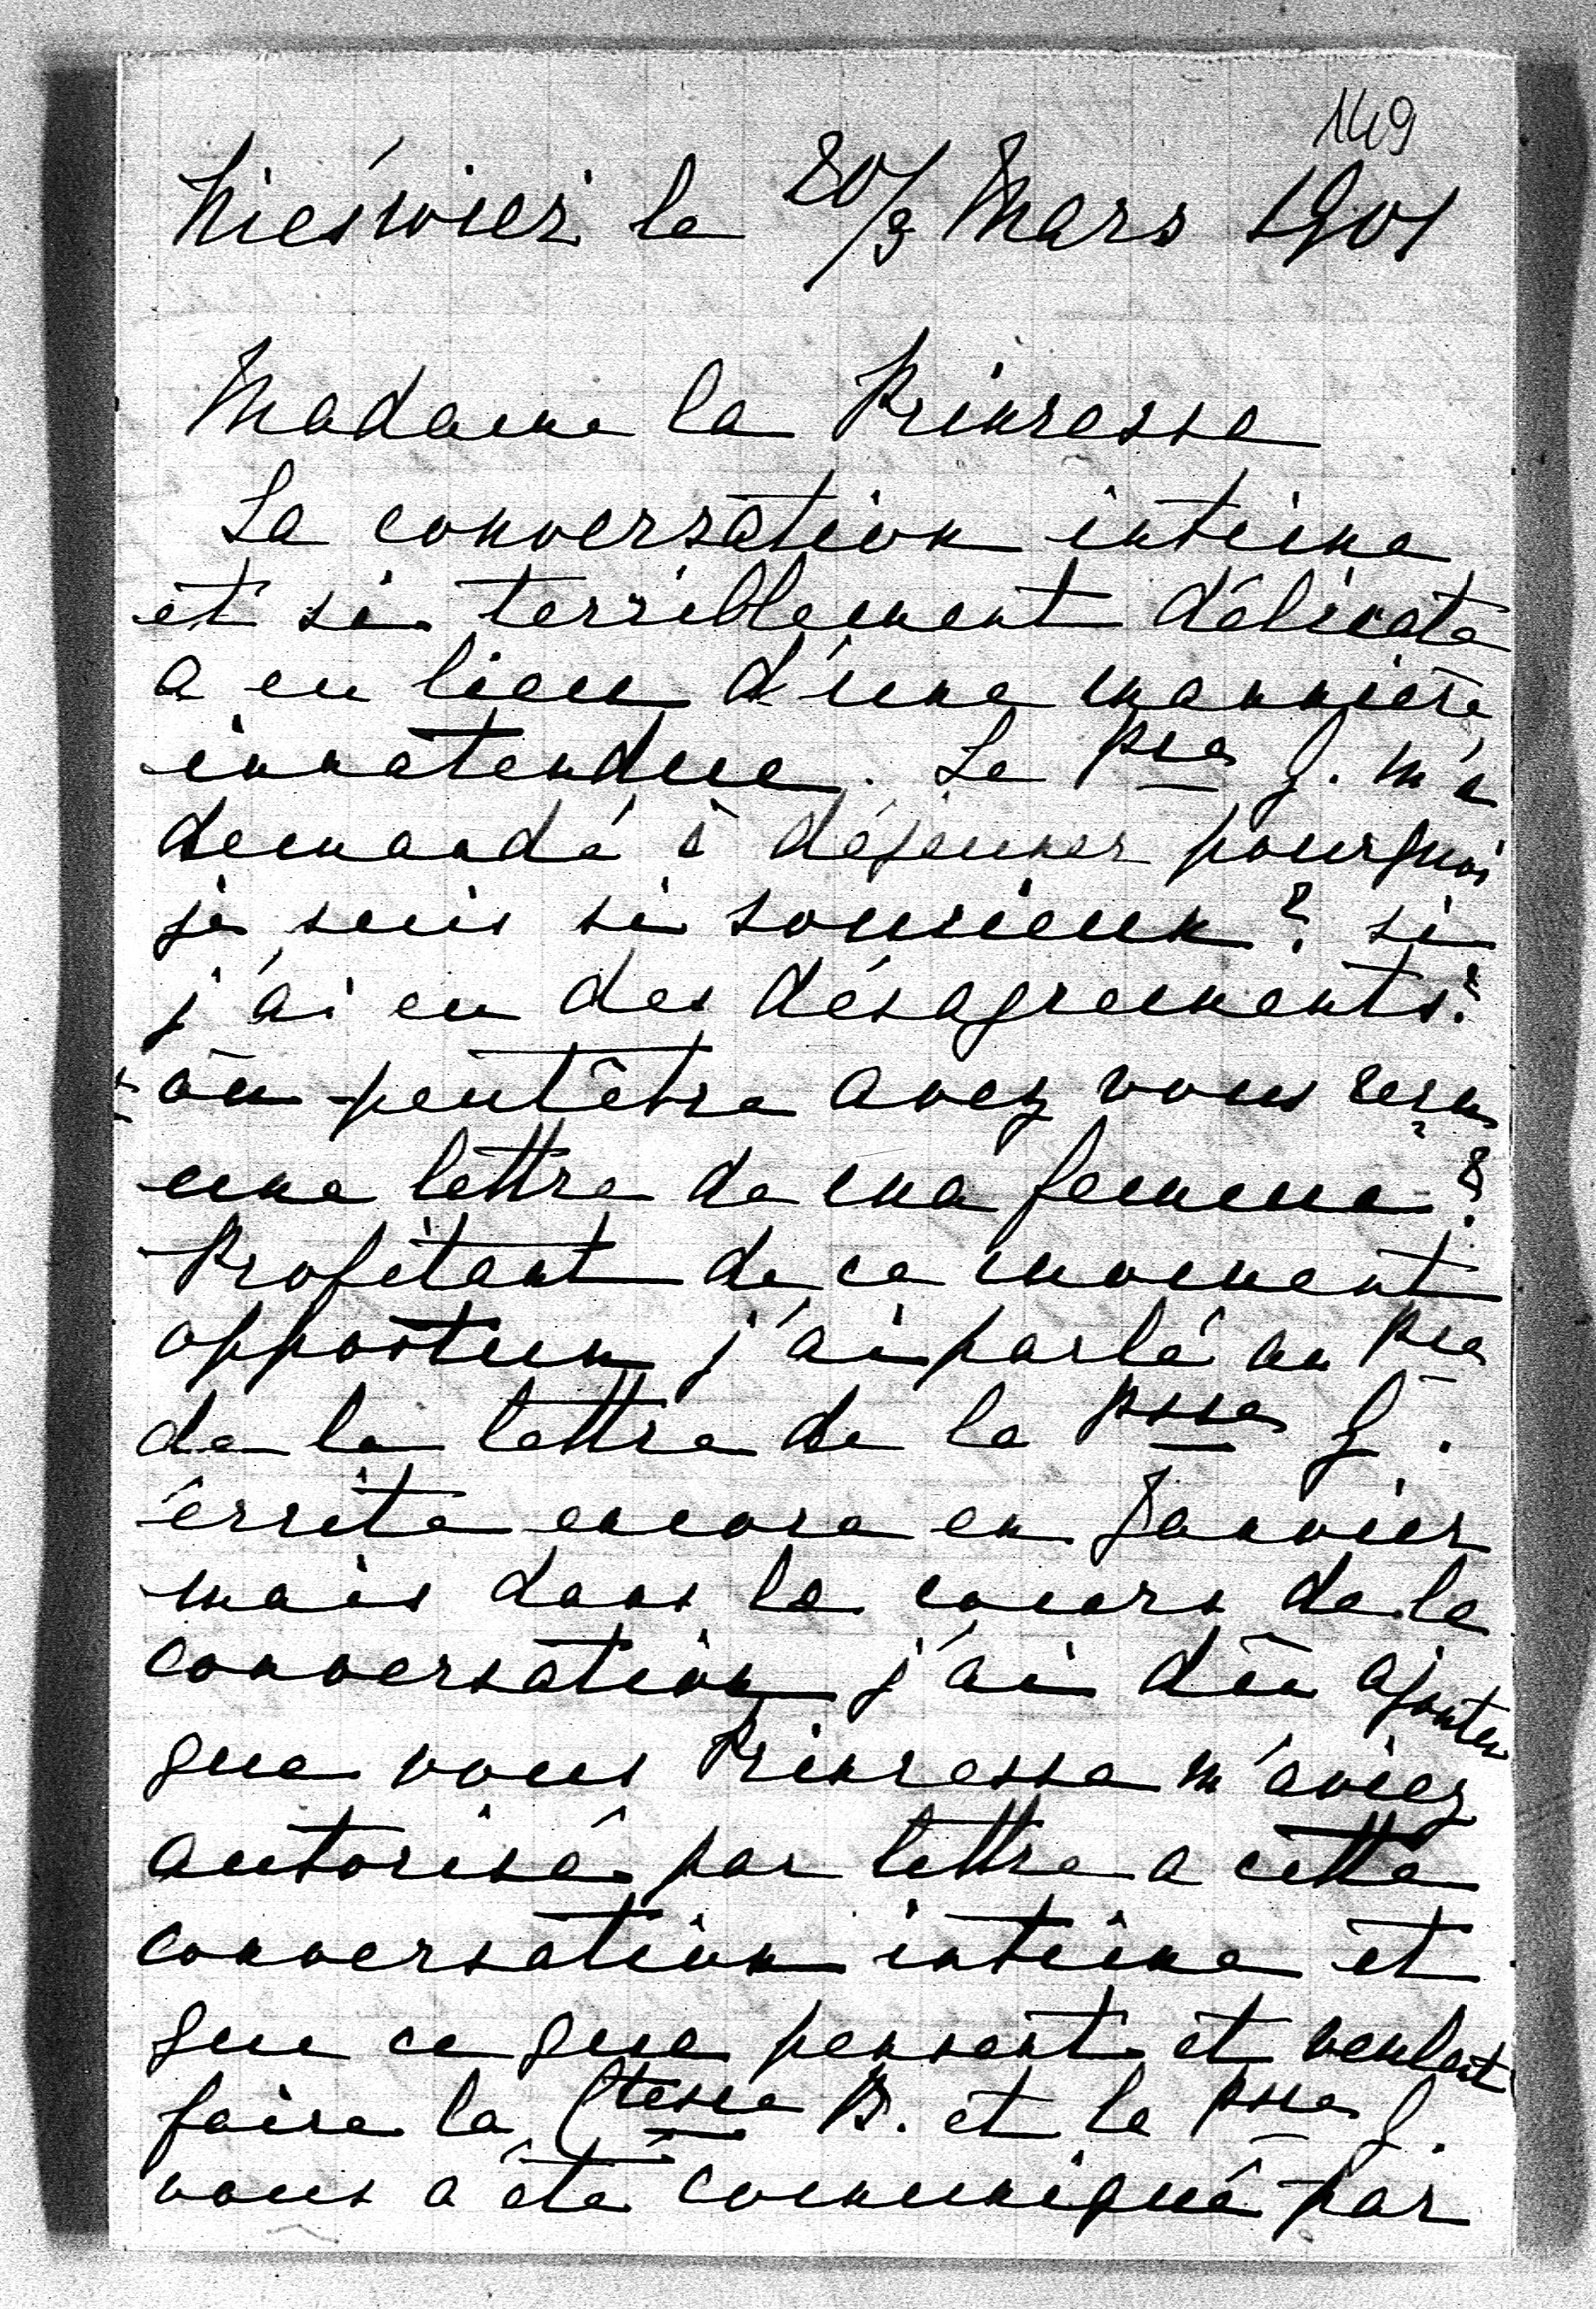 149
Nieśwież le 20/3 Mars 1901
Madame la Princesse
La conversation intime
et si terriblement délicate
a eu lieu d'une mannière
innatendue. Le Pce G. m'a
demandé à déjeuner pourquoi
je suis si soucieux? si
j'ai eu des désagrements?
où peutêtre avez vous reçu
une lettre de ma femme?
Profitant de ce moment
opportun j'ai parlé au Pce
de la lettre de la Psse G.
écrite encore en Janvier
mais dans le cours de la
conversation j'ai dûu ajouter
que vous Princesse m'aviez
autorisé par lettre a cette
conversation intime et
que ce que pensent et veulent
faire la Ctesse B. et la Psse G.
vous a été communiqué par